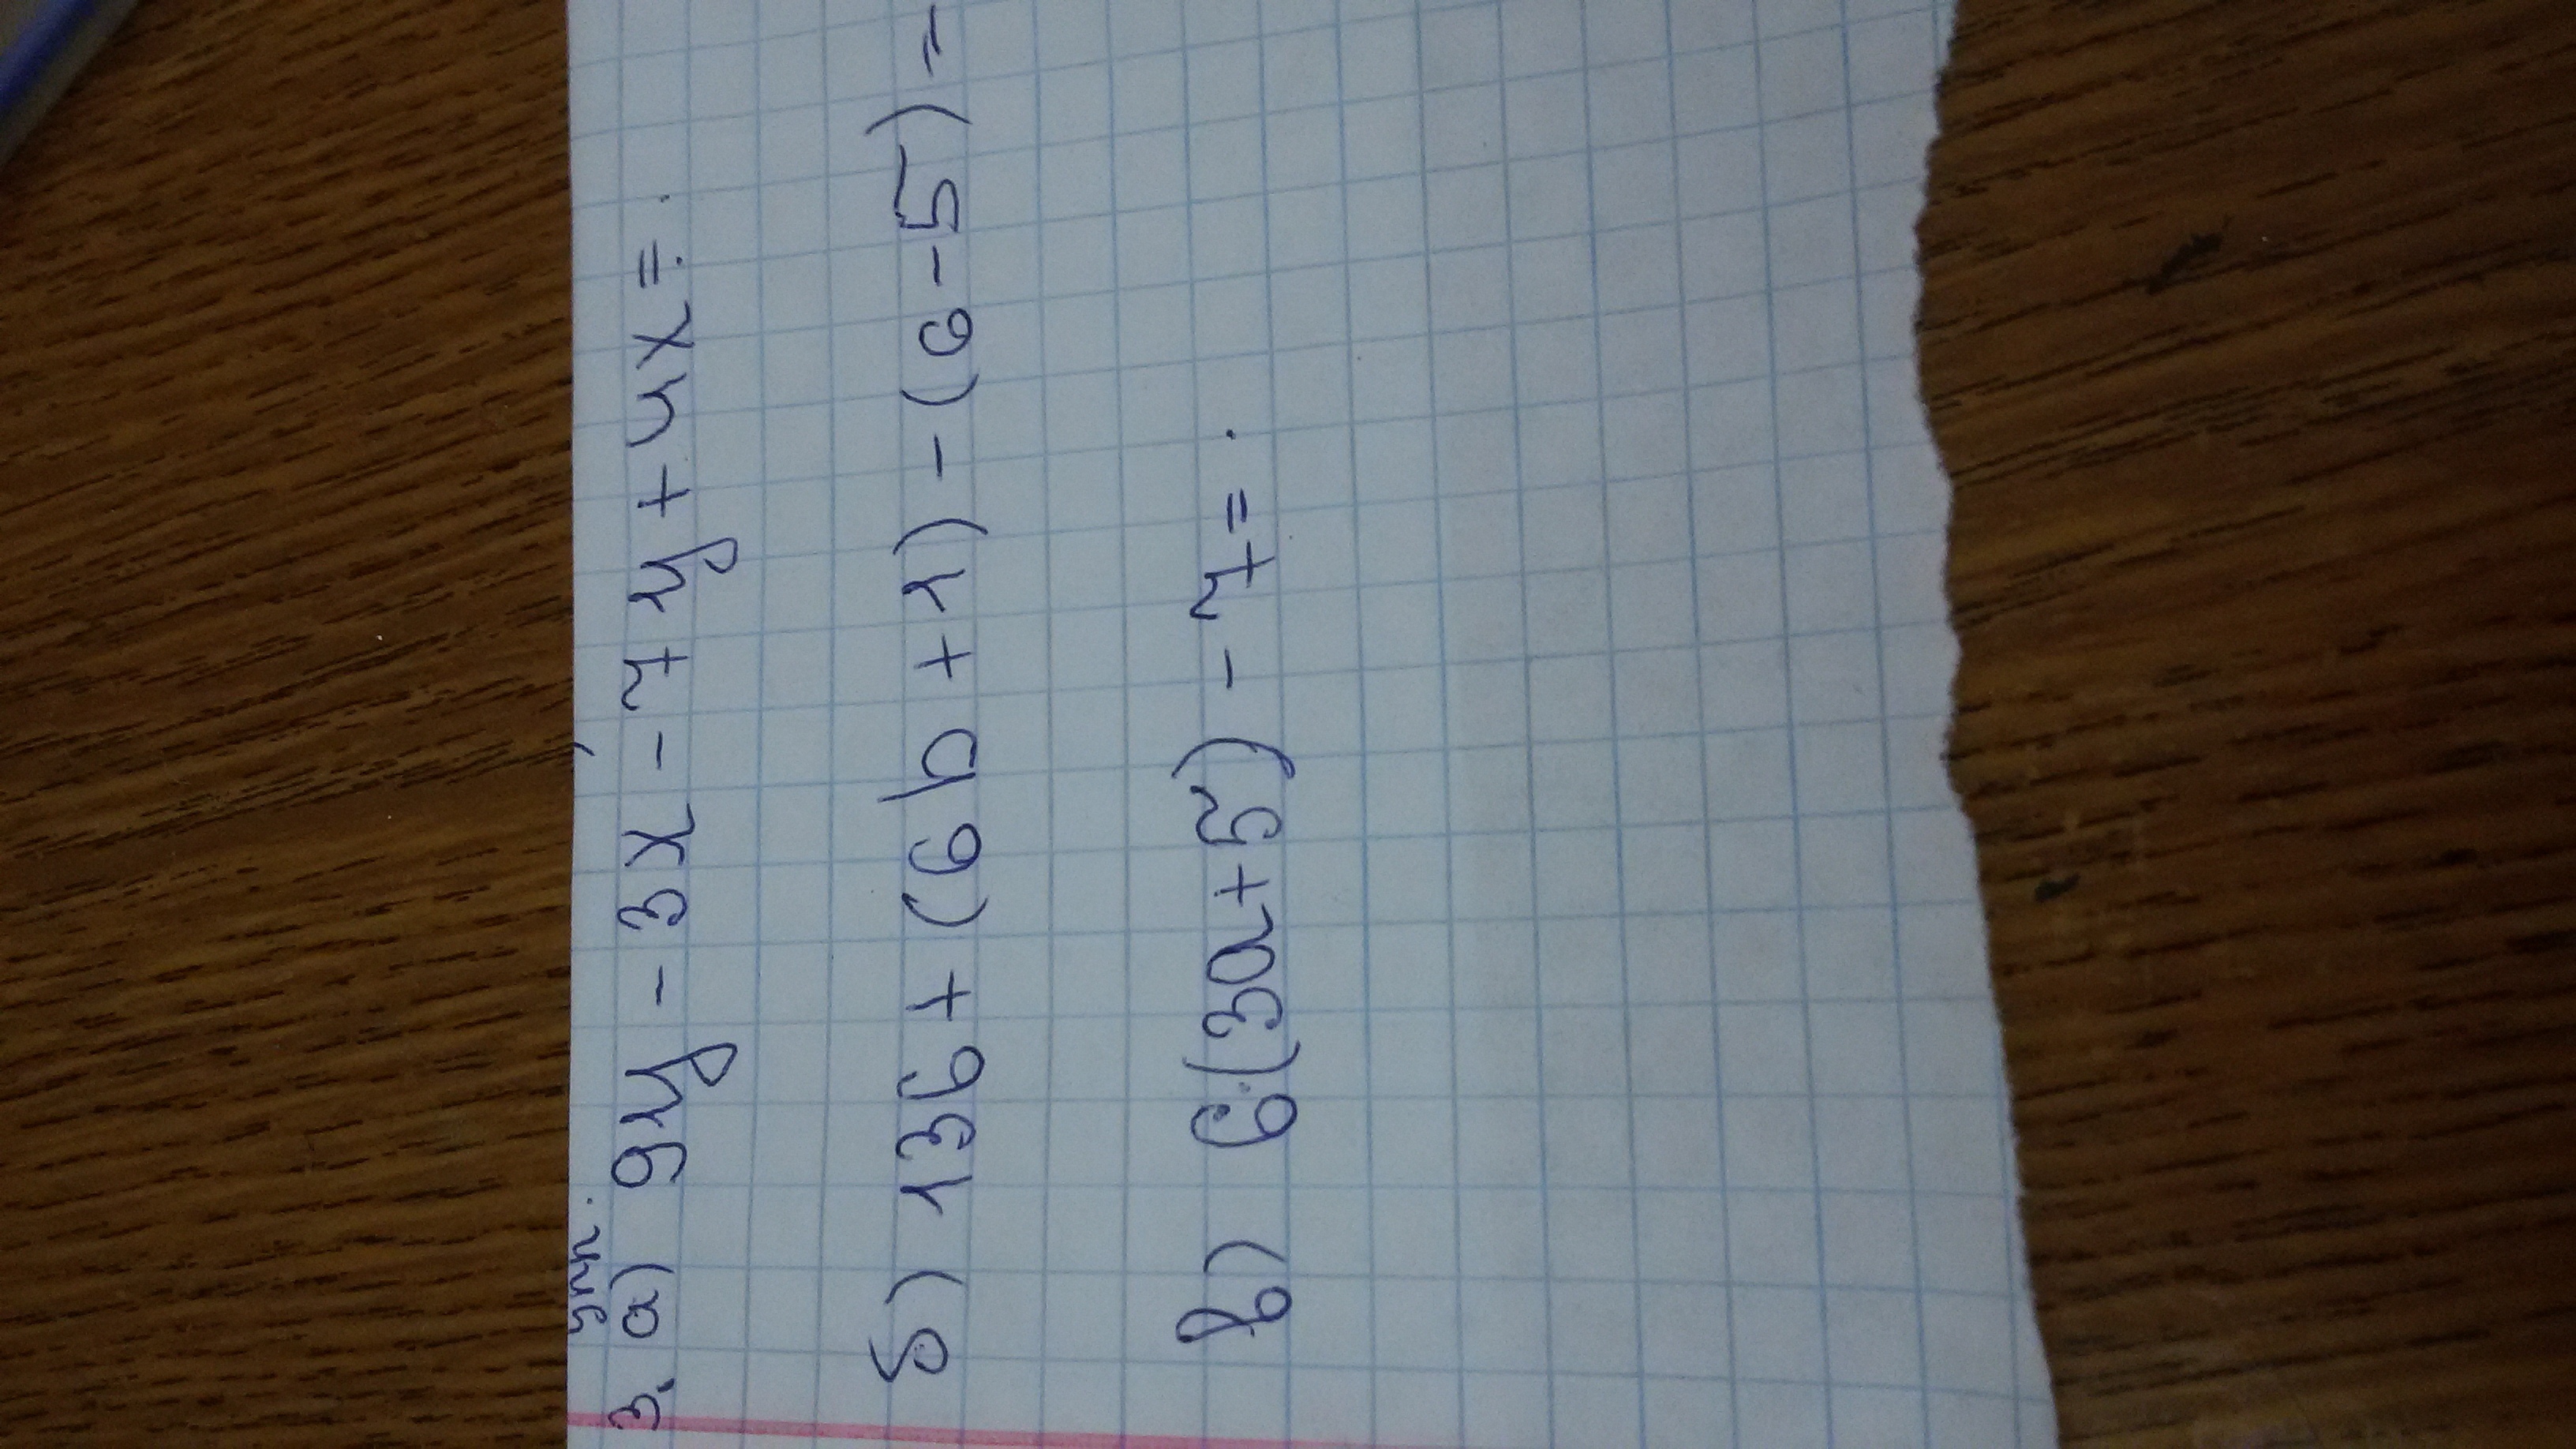 3. а) 9y - 3x - 7y + 4x =
б) 136 + (6b + 1) - (6 - 5) -
в) 6·(3a + 5) - 7 = .